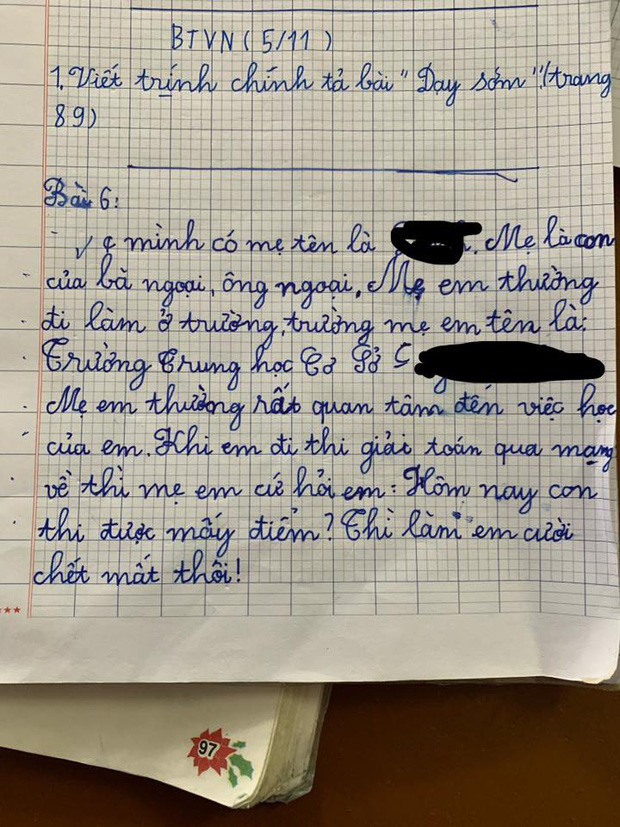 BTVN (5/11)
1. Viết trình chính tả bài "Dạy sớm" (trang
89)
Bài 6:
mình có mẹ tên là . Mẹ là con
của bà ngoại, ông ngoại. Mẹ em thường
đi làm ở trường, trường mẹ em tên là:
Trường Trung học Cơ Sở
Mẹ em thường rất quan tâm đến việc học
của em. Khi em đi thi giải toán qua mạng
về thì mẹ em cứ hỏi em: Hôm nay con
thi được mấy điểm? Thì làm em cười
chết mất thôi!
97